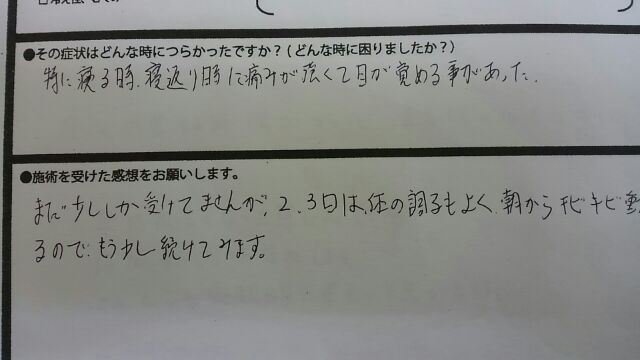 ●その症状はどんな時につらかったですか?(どんな時に困りましたか?)
特に寝る時、寝返り時に痛みが強くて目が覚める事があった.
●施術を受けた感想をお願いします。
まだ少ししか受けてませんが、2、3日は、体の調子もよく、朝からキビキビ動
るので、もう少し続けてみます。